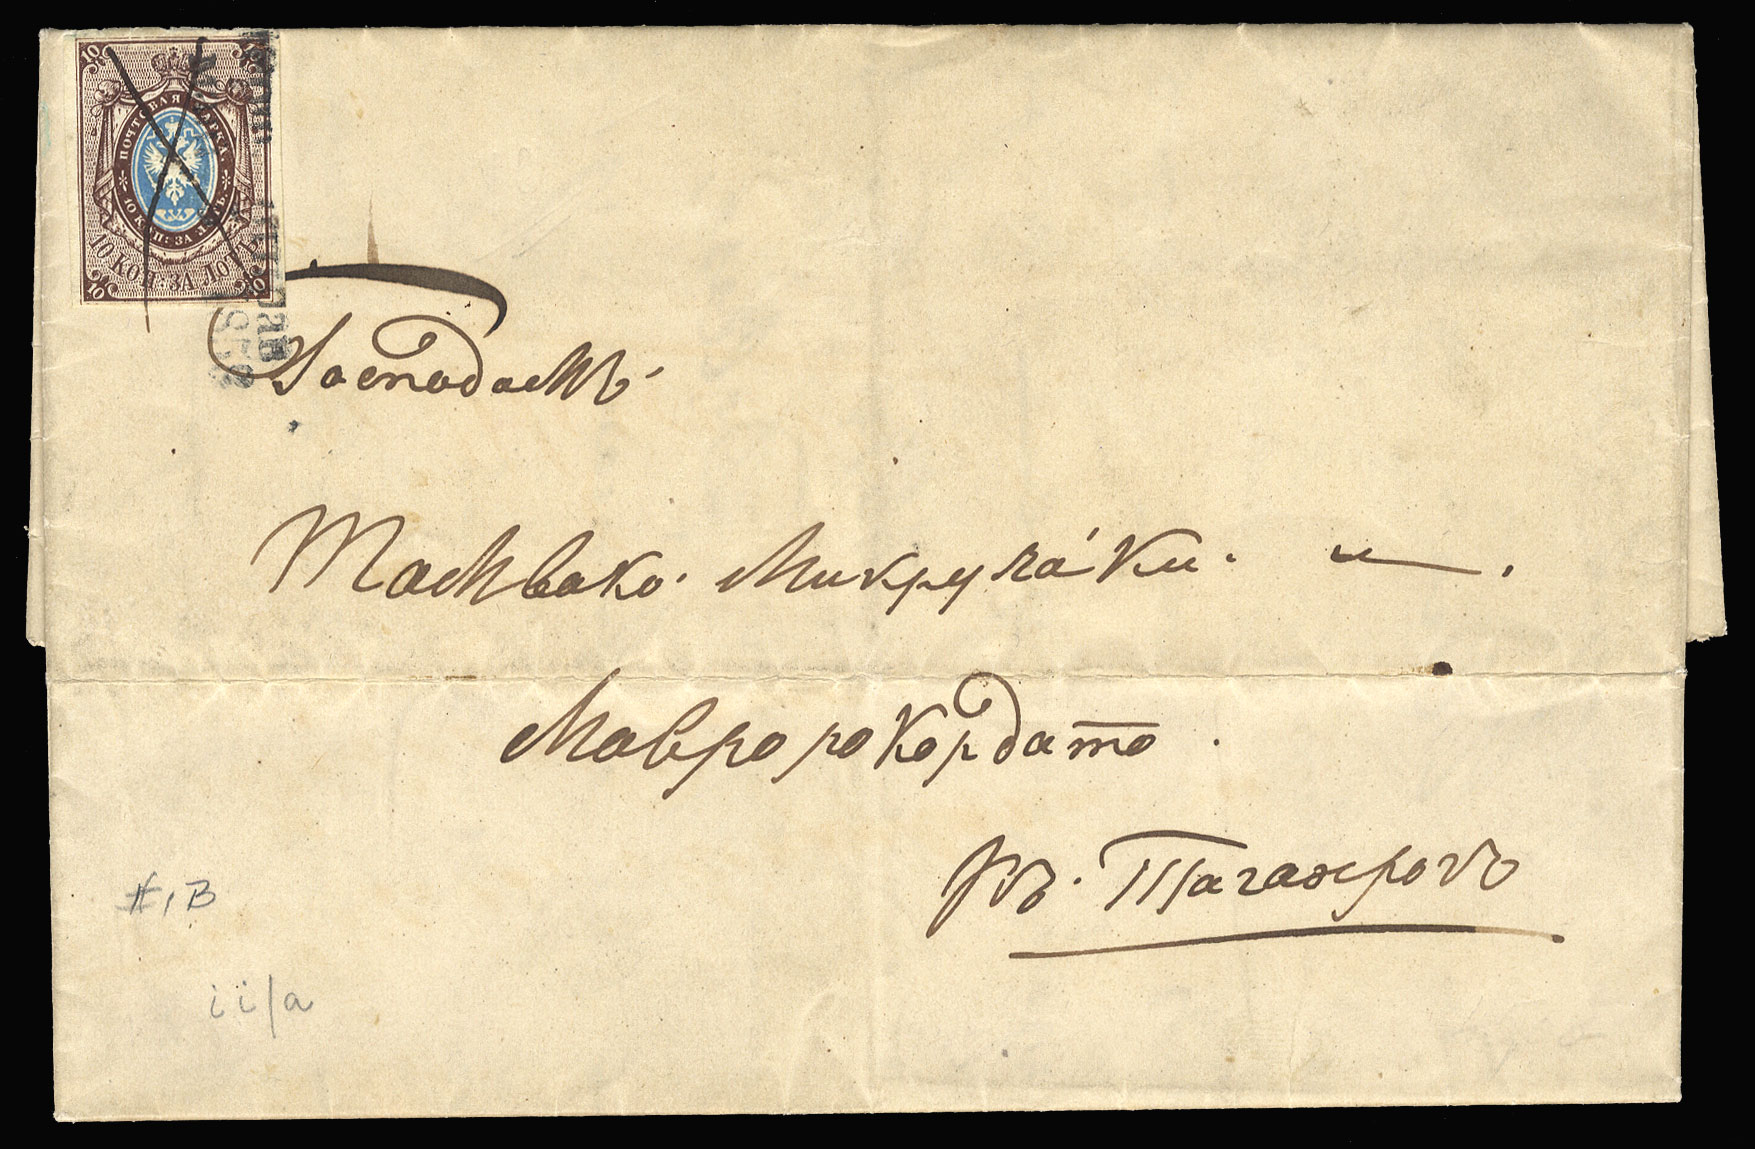 10 10
ПОЧТОВАЯ МАРКА
10 КОП: ЗА ЛОТЪ
10 КОП: ЗА ЛОТЪ
10 10
Господамъ
Тамвако. Микрулáки. и
Мавророкордато.
въ. Таганрогъ
#1B
ii/a